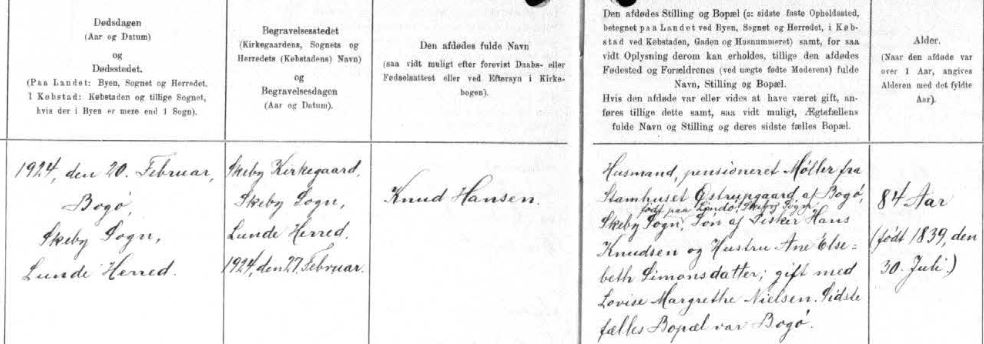 Dødsdagen
(Aar og Datum)
og
Dødsstedet.
(Paa Landet: Byen, Sognet og Herredet.
I Købstad: Købstaden og tillige Sognet,
hvis der i Byen er mere end 1 Sogn).
Begravelsesstedet
(Kirkegaardens, Sognets og
Herredets (Købstadens) Navn)
og
Begravelsesdagen
(Aar og Datum).
Den afdødes fulde Navn
(saa vidt muligt efter forevist Daabs- eller
Fødselsattest eller ved Eftersyn i Kirke-
bogen).
Den afdødes Stilling og Bopæl (ɔ: sidste faste Opholdssted,
betegnet paa Landet ved Byen, Sognet og Herredet, i Køb-
stad ved Købstaden, Gaden og Husnummeret) samt, for saa
vidt Oplysning derom kan erholdes, tillige den afdødes
Fødested og Forældrenes (ved uægte fødte Moderens) fulde
Navn, Stilling og Bopæl.
Hvis den afdøde var eller vides at have været gift, an-
føres tillige dette samt, saa vidt muligt, Ægtefællens
fulde Navn og Stilling og deres sidste fælles Bopæl.
Alder.
(Naar den afdøde var
over 1 Aar, angives
Alderen med det fyldte
Aar).
1924, den 20. Februar,
Bogø,
Skeby Sogn,
Lunde Herred.
Skeby Kirkegaard,
Skeby Sogn,
Lunde Herred.
1924, den 27. Februar.
Knud Hansen.
Husmand, pensioneret Møller fra
Stamhuset Østrupgaard af Bogø,
født paa Lindø, Skeby Sogn
Skeby Sogn, Søn af Fisker Hans
Knudsen og Hustru Ane Else-
beth Simonsdatter; gift med
Lovise Margrethe Nielsen. Sidste
fælles Bopæl var Bogø.
84 Aar
(født 1839, den
30. Juli.)